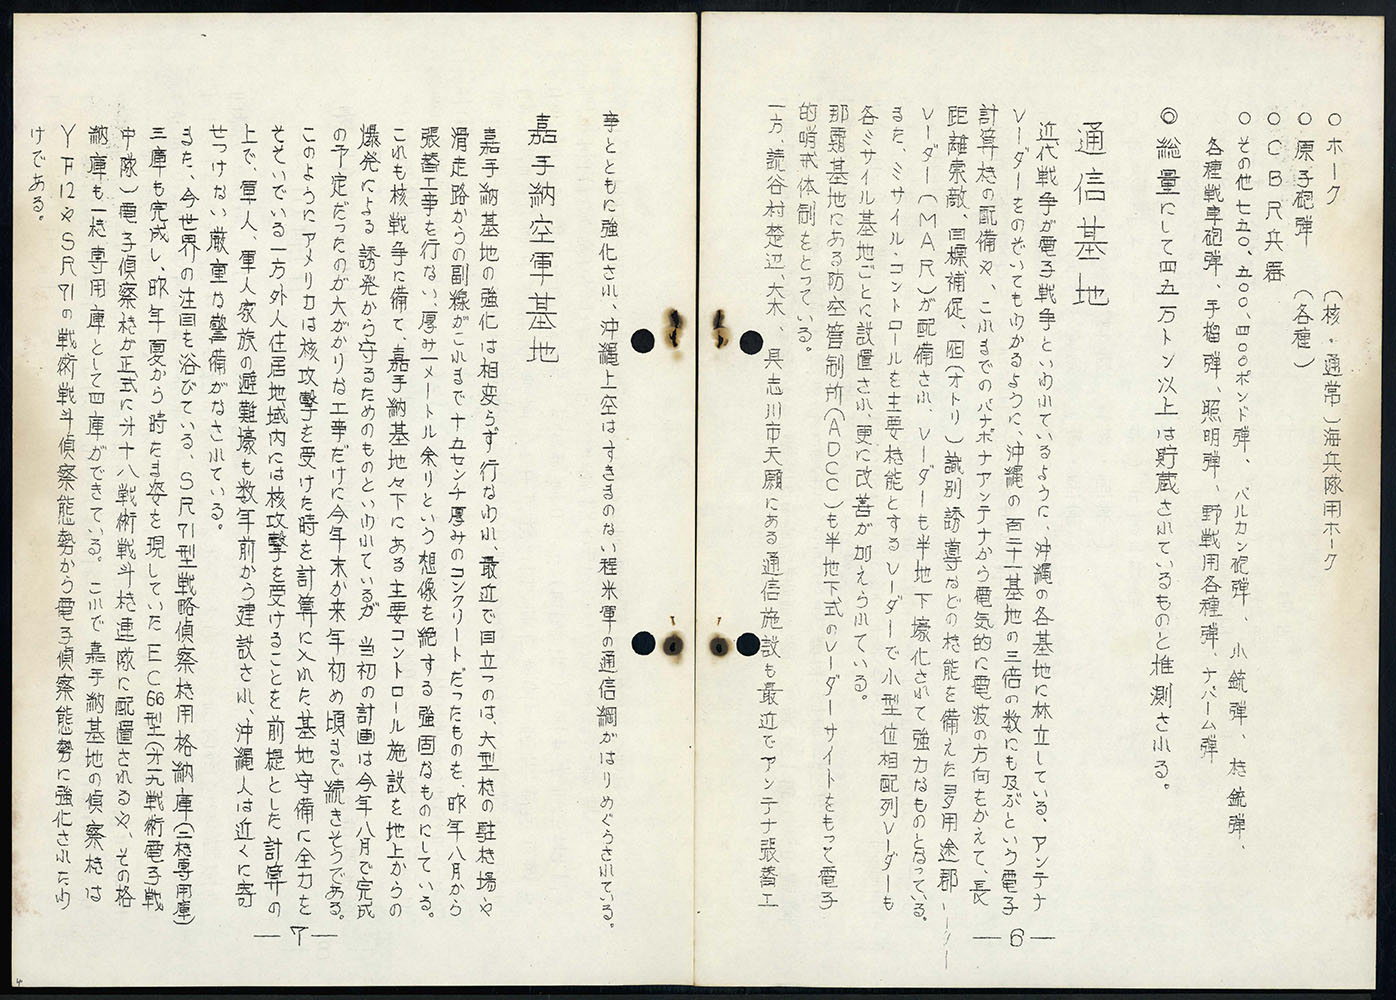 ○ホーク （核・通常）海兵隊用ホーク
○原子砲弾 （各種）
○CBR兵器
○その他七五〇、五〇〇、四〇〇ポンド弾、バルカン砲弾、小銃弾、桟銃弾、
各種戦車砲弾、手榴弾、照明弾、野戦用各種弾、ナパーム弾
◎総量にして四五万トン以上は貯蔵されているものと推測される。
通信基地
近代戦争が電子戦争といわれているように、沖縄の各基地に林立している、アンテナ
レーダーをのぞいてもわかるように、沖縄の百三十一基地の三倍の数にも及ぶという電子
計算桟の配備や、これまでのパナボナアンテナから電気的に電波の方向をかえて、長
距離索敵、目標補促、囮（オトリ）識別誘導などの桟能を備えた多用途郡レーダー
レーダー（MAR）が配備され、レーダーも半地下壕化されて強力なものとなっている。
また、ミサイル・コントロールを主要桟能とするレーダーで小型位相配列レーダーも
各ミサイル基地ごとに設置され、更に改善が加えられている。
那覇基地にある防空管制所（ADCC）も半地下式のレーダーサイトをもって電子
的哨戒体制をとっている。
一方、読谷村楚辺、大木、具志川市天願にある通信施設も最近でアンテナ張替工
―6―
事とともに強化され、沖縄上空はすきまのない程米軍の通信綱がはりめぐらされている。
嘉手納空軍基地
嘉手納基地の強化は相変らず行なわれ、最近で目立つのは、大型桟の駐桟場や
滑走路からの副線がこれまで十五センチ厚みのコンクリートだったものを、昨年八月から
張替工事を行ない、厚み一メートル余りという想像を絶する強固なものにしている。
これも核戦争に備て、嘉手納基地々下にある主要コントロール施設を地上からの
爆発による誘発から守るためのものといわれているが、当初の計画は今年八月で完成
の予定だったのが大がかりな工事だけに今年末か来年初め頃まで続きそうである。
このようにアメリカは核攻撃を受けた時を計算に入れた、基地守備に全力を
そそいでいる一方外人住居地域内には核攻撃を受けることを前提とした計算の
上で、軍人、軍人家族の避難壕も数年前から建設され、沖縄人は近くに寄
せつけない厳重な警備がなされている。
また、今世界の注目を浴びている、SR71型戦略偵察桟用格納庫（二桟専用庫）
三庫も完成し、昨年夏から時たま姿を現していたEC66型（才一九戦術電子戦
中隊）電子偵察桟が正式に才十八戦術戦斗桟連隊に配置されるや、その格
納庫も一桟専用庫として四庫ができている。これで嘉手納基地の偵察桟は
YF12やSR71の戦術戦斗偵察態勢から電子偵察態勢に強化されたわ
けである。
―7―